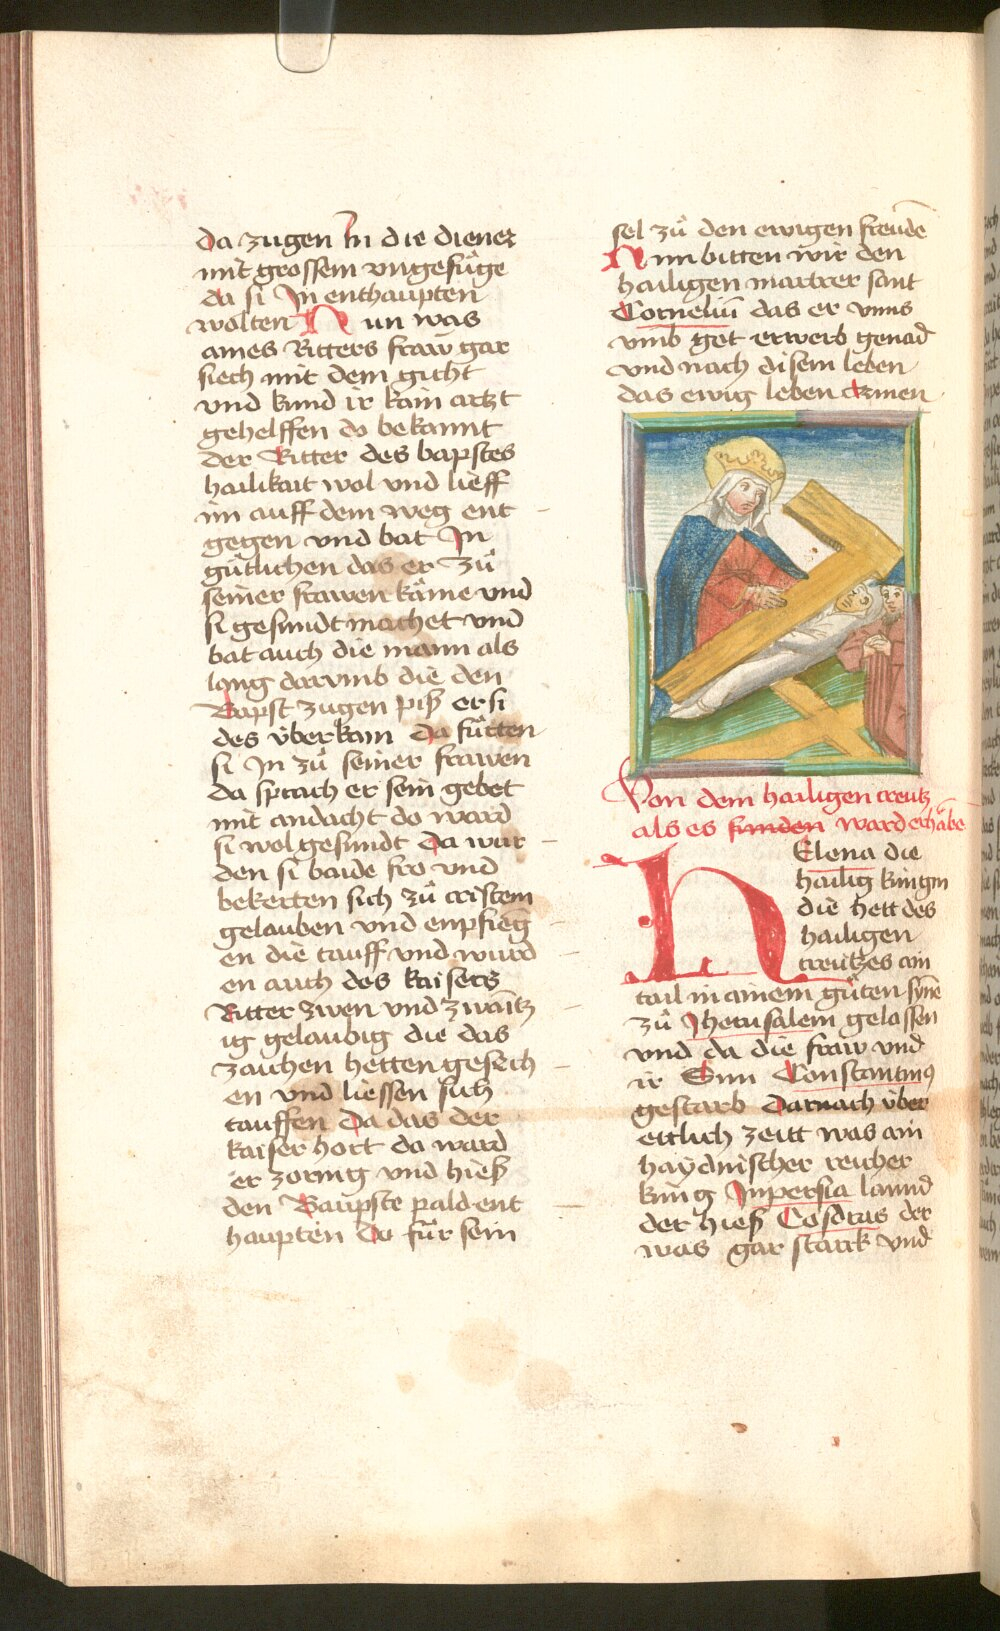 da zugen In die diener
mit grossem vngefüge
da si In enthaupten
wolten Nun was
aines Ritters fraw gar
siech mit dem gicht
vnd kund ir kain artzt
gehelffen do bekannt
der Ritter des bapstes
hailikait wol vnd lieff
im auff dem weg ent
gegen vnd bat In
gütlichen das er zů
seiner frawen käme vnd
si gesundt machet vnd
bat auch die mann als
lang darumb die den
Bapst zugen piß er si
des überkam Da fürten
si In zů seiner frawen
da sprach er sein gebet
mit andacht do ward
si wol gesundt Da wur
den si baide fro vnd
bekerten sich zů cristem
gelauben vnd enpfieng
en die tauff vnd wurd
en auch des kaisers
Ritter zwen vnd zwaintz
ig gelaubig die das
zaichen hetten gesech
en vnd liessen sich
tauffen Da das der
kaiser hort da ward
er zornig vnd hieß
den Baupste pald ent
haupten Do für sein
sel zů den ewigen freüde
Nun bitten wir den
hailigen martrer sant
Corneliū das er vnns
vmb got erwerb genad
vnd nach disem leben
das ewig leben Amen
Von dem hailigen creutz
als es funden ward erhäbē
HElena die
hailig küngin
die hett des
hailigen
creützes ain
tail in ainem gůten syne
zů Jherusalem gelassen
vnd da die fraw vnd
ir Sun Constantinus
gestarb Darnach über
ettlich zeitt was ain
haydnischer reicher
küng Inpersia lannd
der hieß Cosdras der
was gar starck vnd